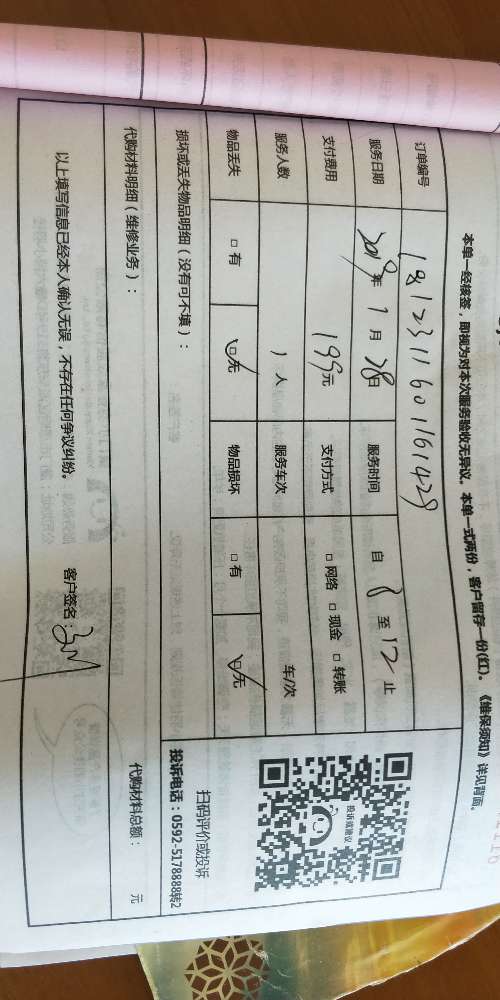 本单一经核签，即视为对本次服务验收无异议。本单一式两份，客户留存一份(红)。《维保须知》详见背面。
订单编号 1812311601161429
服务日期 2019年 1 月 28日 服务时间 自 8 至 12 止
支付费用 199元 支付方式 □ 网络 □ 现金 □ 转账
服务人数 1 人 服务车次 车/次
物品丢失 □ 有 ☑无 物品损坏 □ 有 ☑无
投诉或建议
扫码评价或投诉
投诉电话：0592-5178888转2
损坏或丢失物品明细（没有可不填）：
代购材料明细（维修业务）： 代购材料总额： 元
以上填写信息已经本人确认无误，不存在任何争议纠纷。 客户签名：